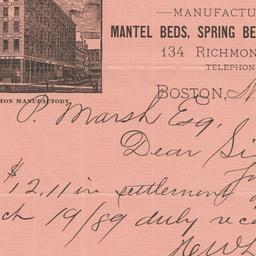 —MANUFACTU
MANTEL BEDS, SPRING BE
134 RICHMON
TELEPHON
TON MANUFACTORY.
BOSTON,
P. Marsh Esq.
Dear Si
$12.11 in settlement
ch 19/89 duly rec